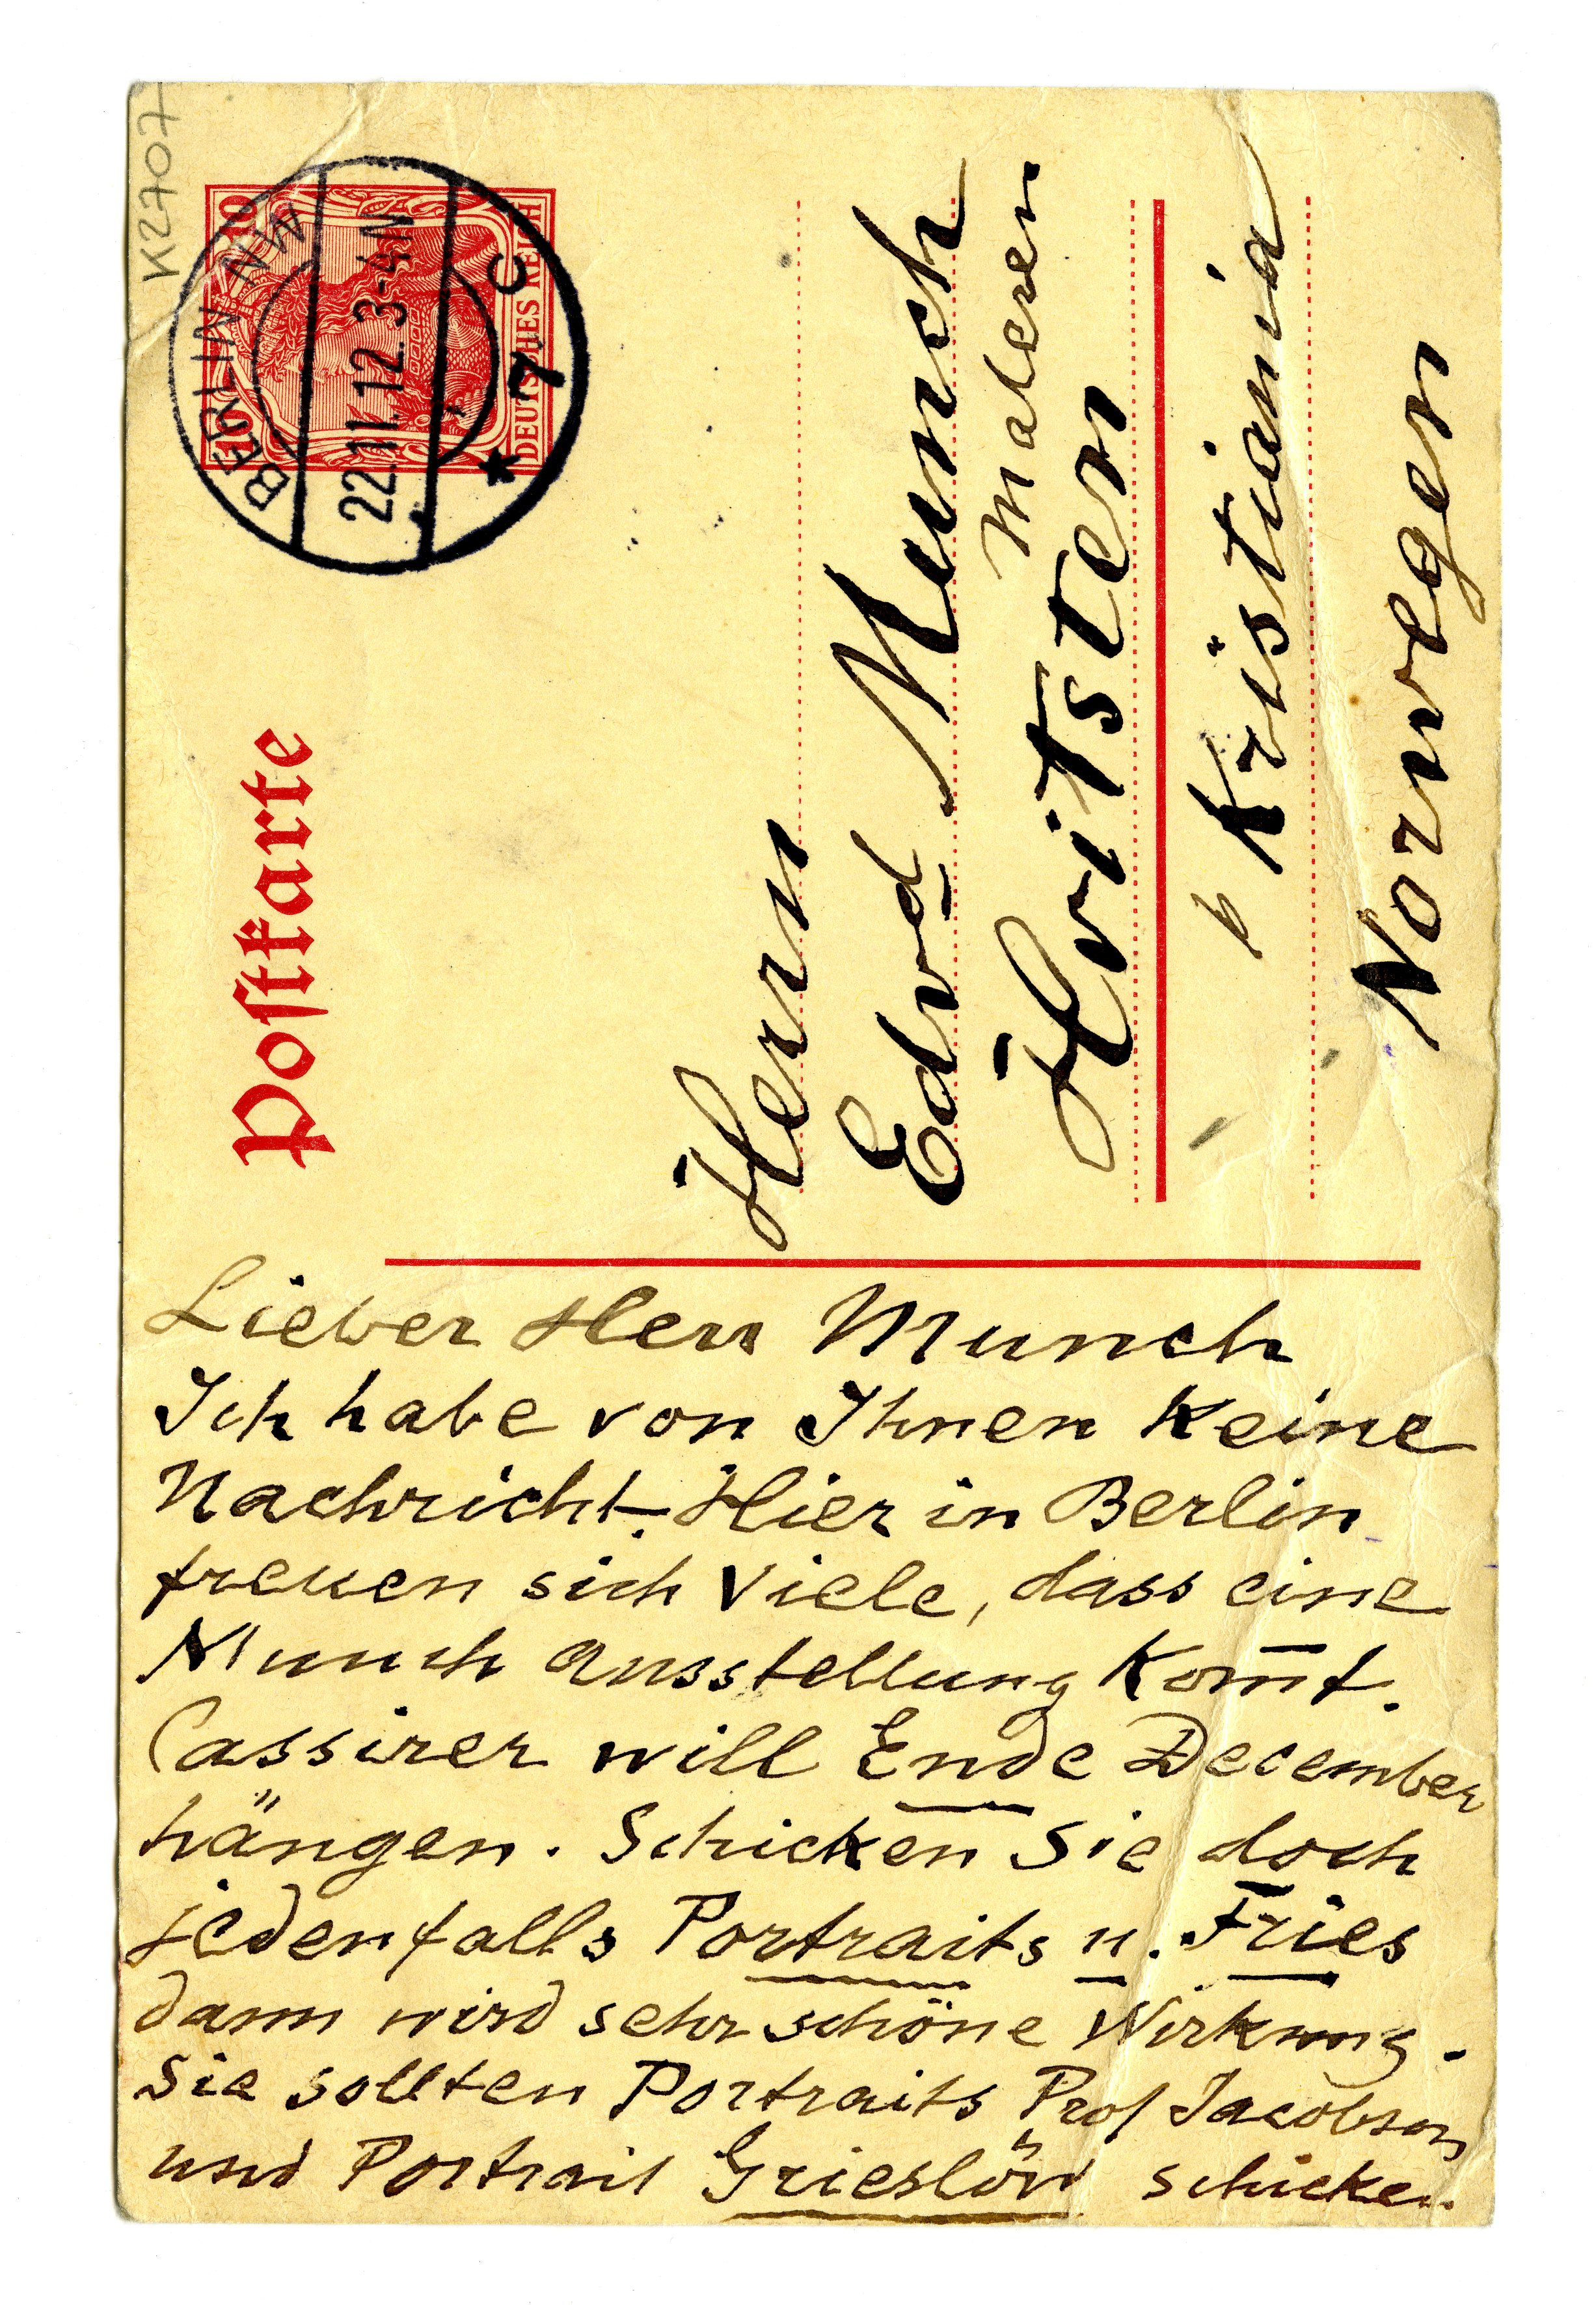 K2707
BERLIN NW
22.11.12.3-4N
* 7 C
10
DEUTSCHES REICH
Postkarte
Herrn
Edvd Munch
Maleren
Hvitsten
b Kristiania
Norwegen
Lieber Herr Munch
Ich habe von Ihnen Keine
Nachricht. Hier in Berlin
freuen sich Viele, dass eine
Munch Ausstellung Kom̄t.
Cassirer will Ende December
hängen. Schicken Sie doch
jedenfalls Portraits u. Fries
dann wird sehr schöne Wirkung.
Sie sollten Portraits Prof Jacobson
und Portrait Grieslöw schicken